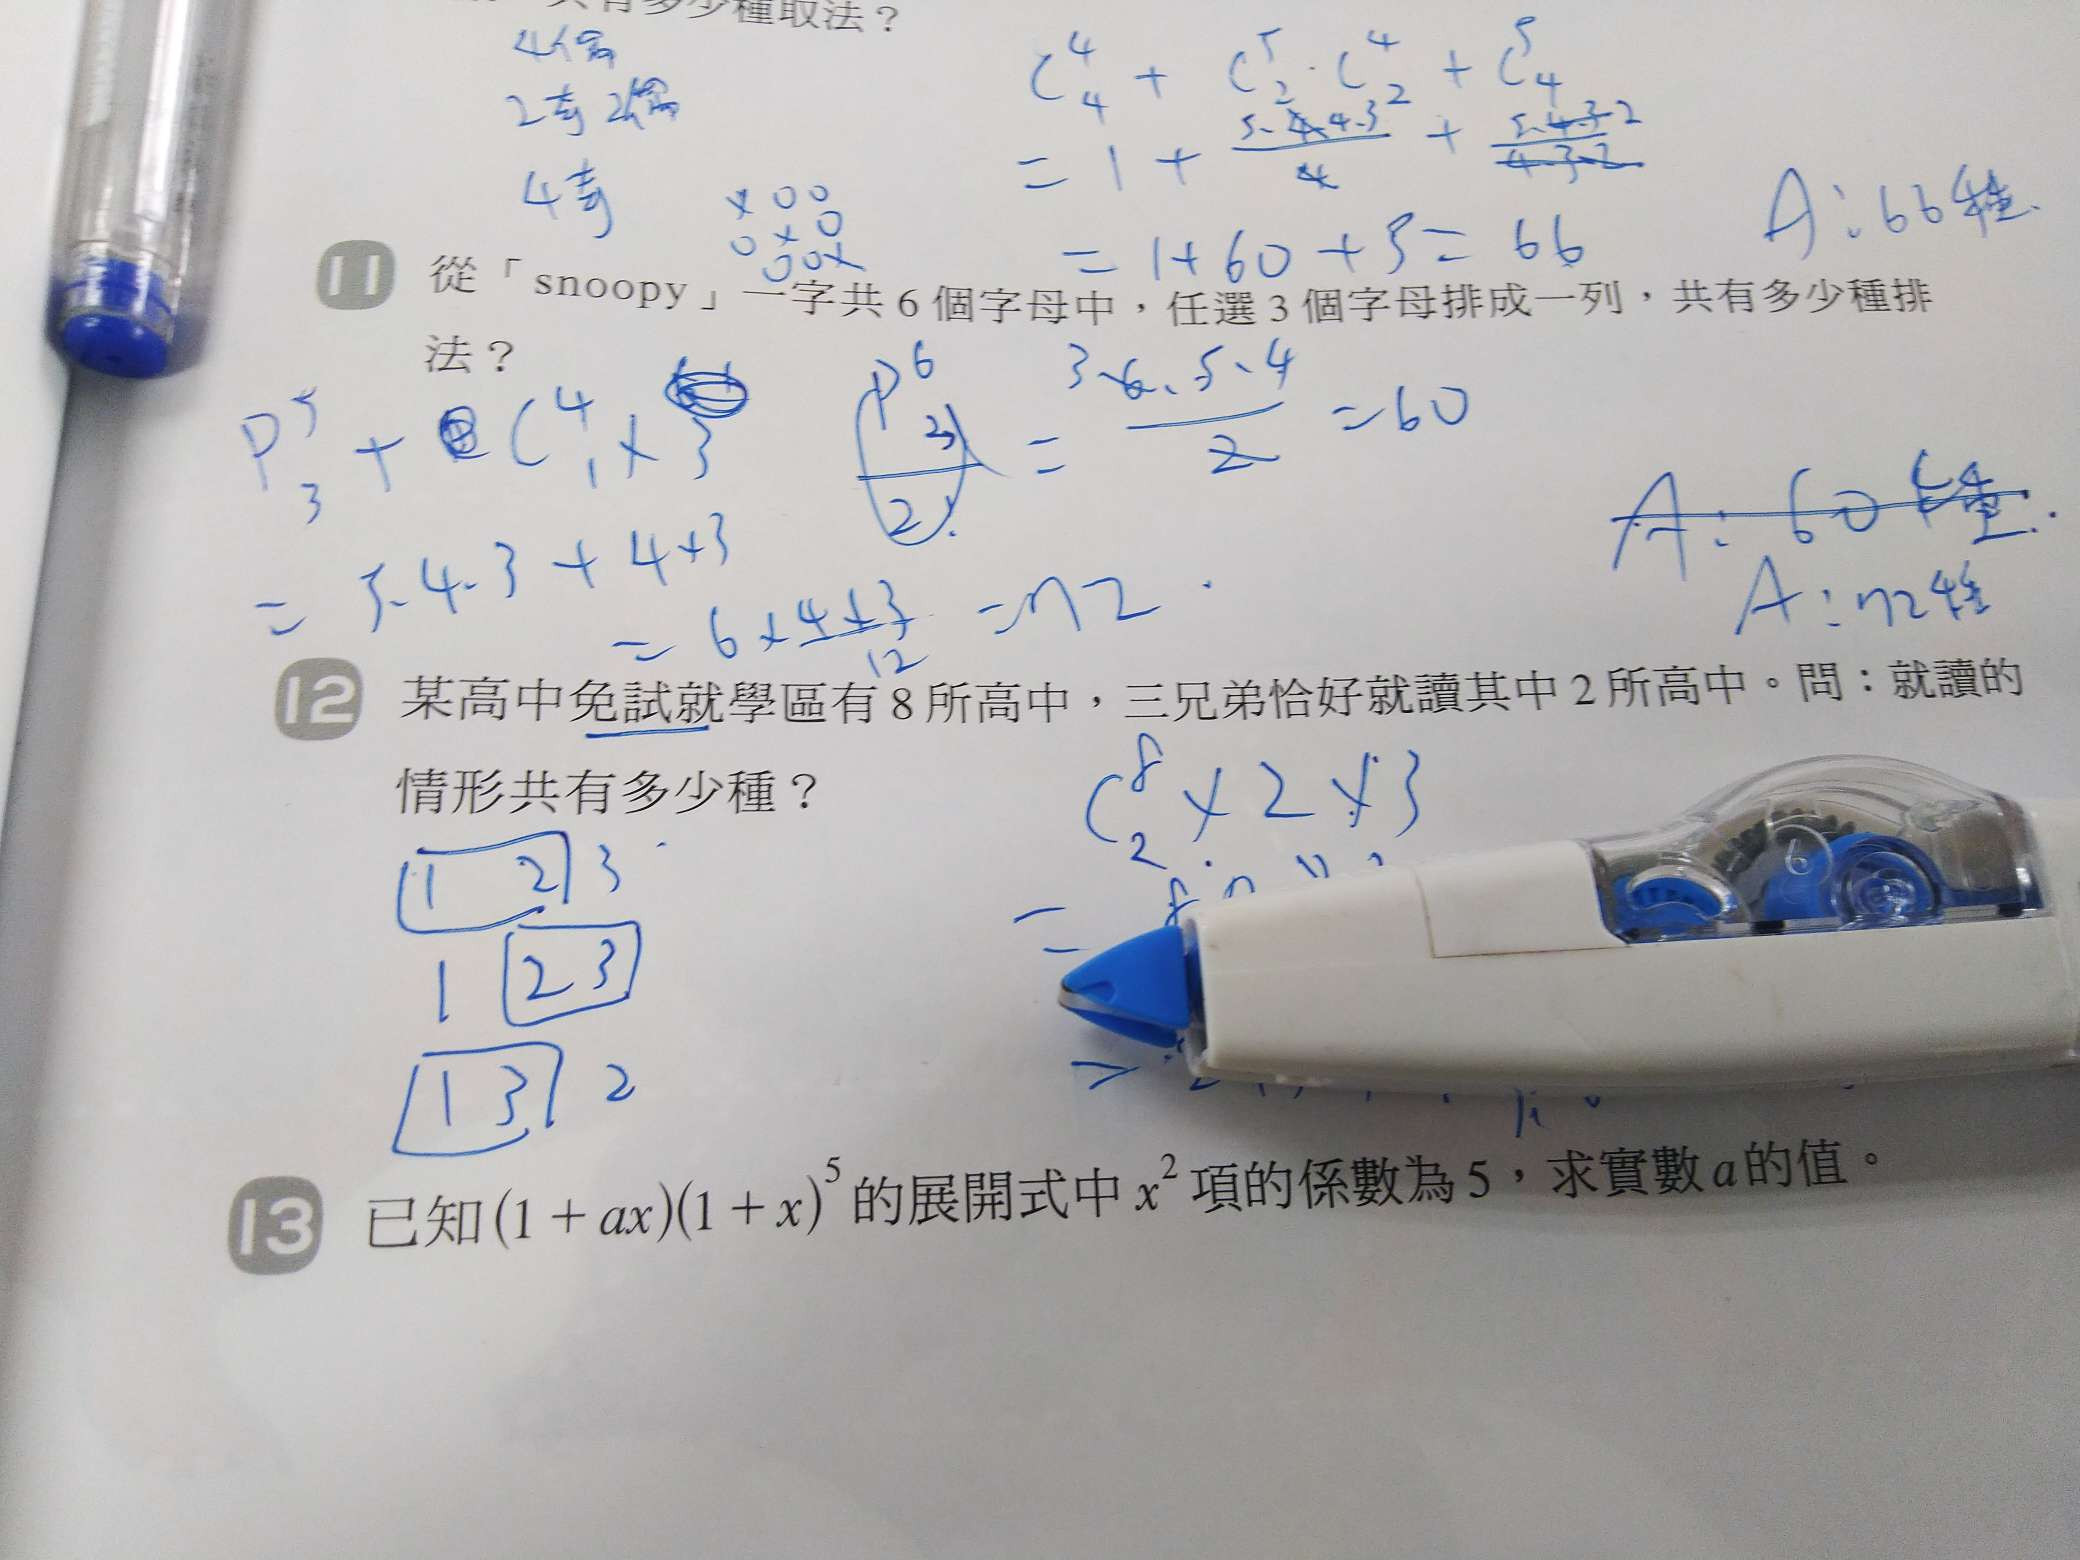 共有多少種取法？
4偶
2奇2偶
4奇
C⁴₄ + C⁵₂·C⁴₂ + C⁵₄
= 1 + 5·4·4·3/4 + 5·4·3·2/4·3·2
= 1+60+5= 66
A：66種.
×○○
○×○
○○×
11 從「snoopy」一字共6個字母中，任選3個字母排成一列，共有多少種排
法？
P⁵₃ + C⁴₁ × 3
= 5·4·3 + 4×3
= 6×4×3 = 72
12
P⁶₃/2! = 3·6·5·4/2 = 60
A：60種.
A：72種
12 某高中免試就學區有8所高中，三兄弟恰好就讀其中2所高中。問：就讀的
情形共有多少種？
1 2 3
1 2 3
1 3 2
C⁸₂ × 2 × 3
=
13 已知(1+ax)(1+x)⁵的展開式中x²項的係數為5，求實數a的值。